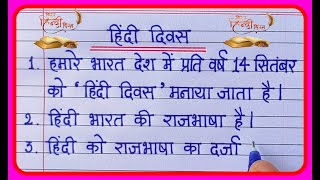 हिंदी दिवस
1. हमारे भारत देश में प्रति वर्ष 14 सितंबर
को 'हिंदी दिवस' मनाया जाता है।
2. हिंदी भारत की राजभाषा है।
3. हिंदी को राजभाषा का दर्जा